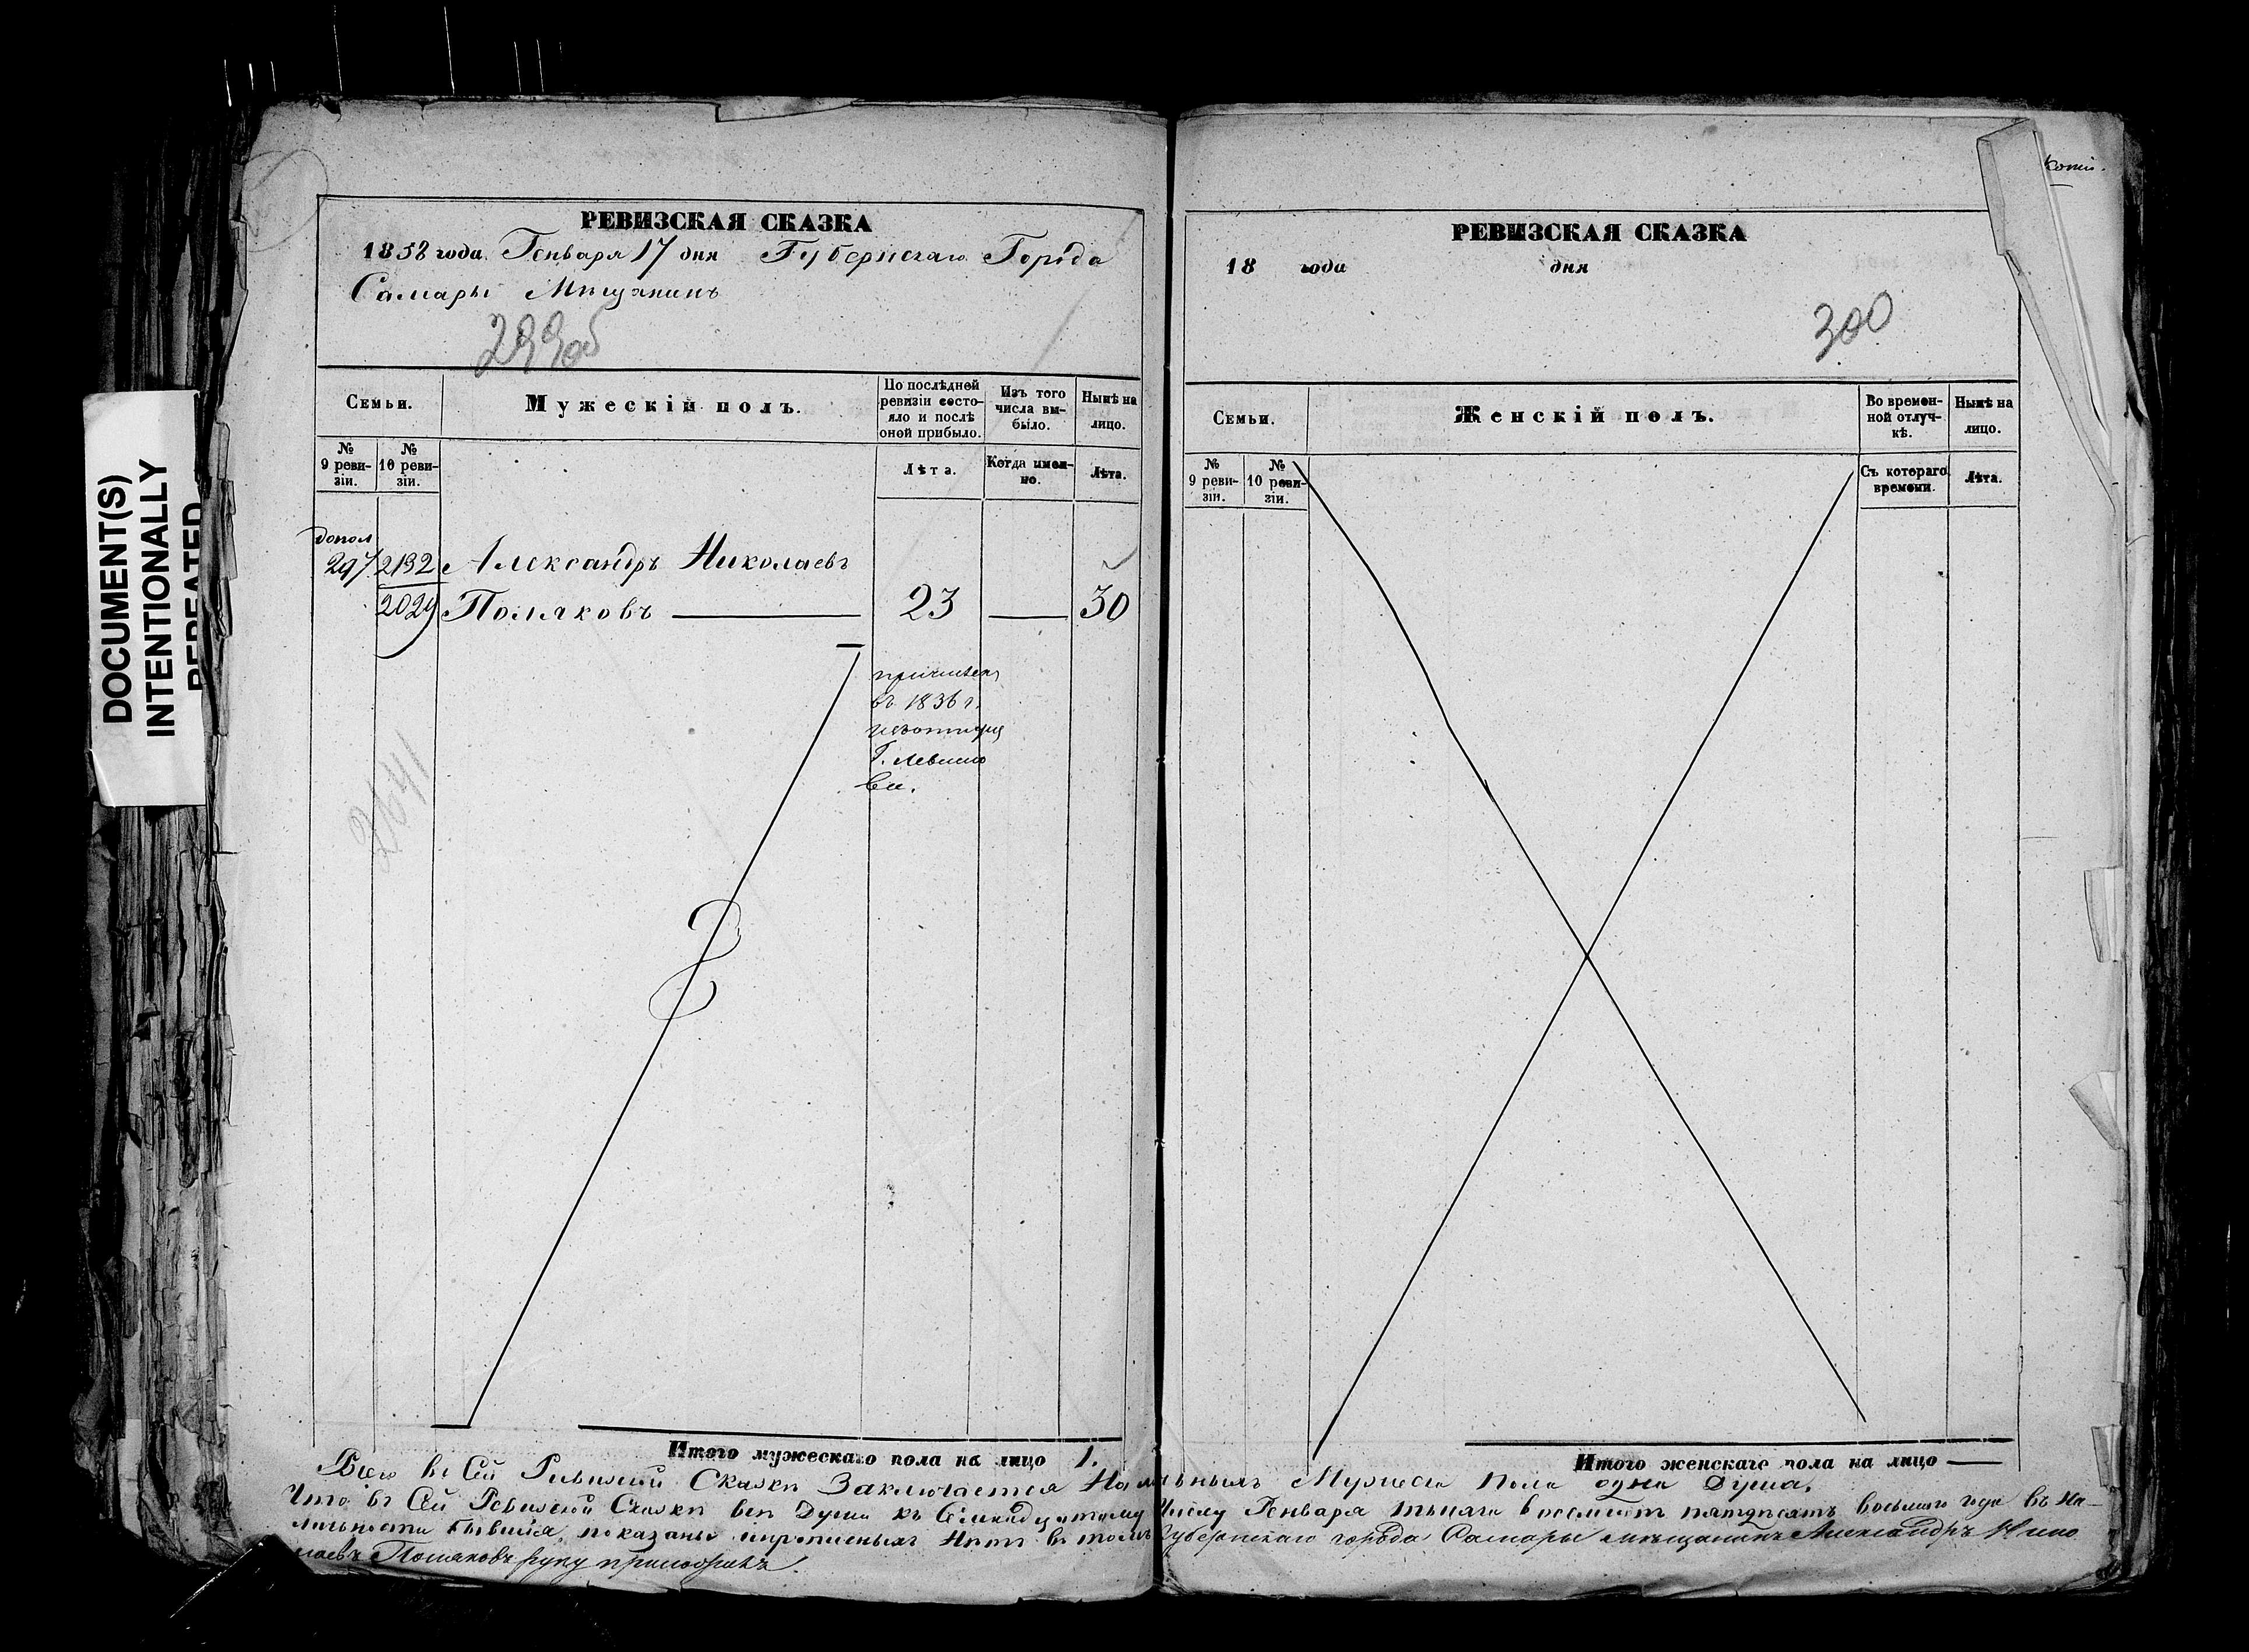 DOCUMENT(S)
INTENTIONALLY
REPEATED
РЕВИЗСКАЯ СКАЗКА
1858 года Генваря 17 дня Губернскаго Города
Самары Мѣщанинъ
299об
Семьи.
Мужескій полъ.
По послѣдней
ревизіи состо-
яло и послѣ
оной прибыло.
Изъ того
числа вы-
было.
Нынѣ на
лицо.
№
9 реви-
зіи.
№
10 реви-
зіи.
Лѣта.
Когда имен-
но.
Лѣта.
допол
297 2132 Александръ Николаевъ
2029 Поляковъ 23 30
въ 1836 г.
2641
Итого мужескаго пола на лицо 1.
копія.
РЕВИЗСКАЯ СКАЗКА
18 года дня
300
Семьи.
Женскій полъ.
Во времен-
ной отлуч-
кѣ.
Нынѣ на
лицо.
№
9 реви-
зіи.
№
10 реви-
зіи.
Съ котораго
времени.
Лѣта.
Итого женскаго пола на лицо —
Всего въ Сей Ревизской Сказкѣ Заключается Наличныхъ Мужеска Пола одна Душа.
Что въ Сей Ревизской Сказкѣ всѣ Души къ Семнадцатому Числу Генваря тысяча восемьсотъ пятдесятъ восьмаго года въ На-
личности бывшія, показаны и прописныхъ Нѣтъ въ томъ Губернскаго города Самары мѣщанинъ Александръ Нико
лаевъ Поляковъ руку приложилъ.